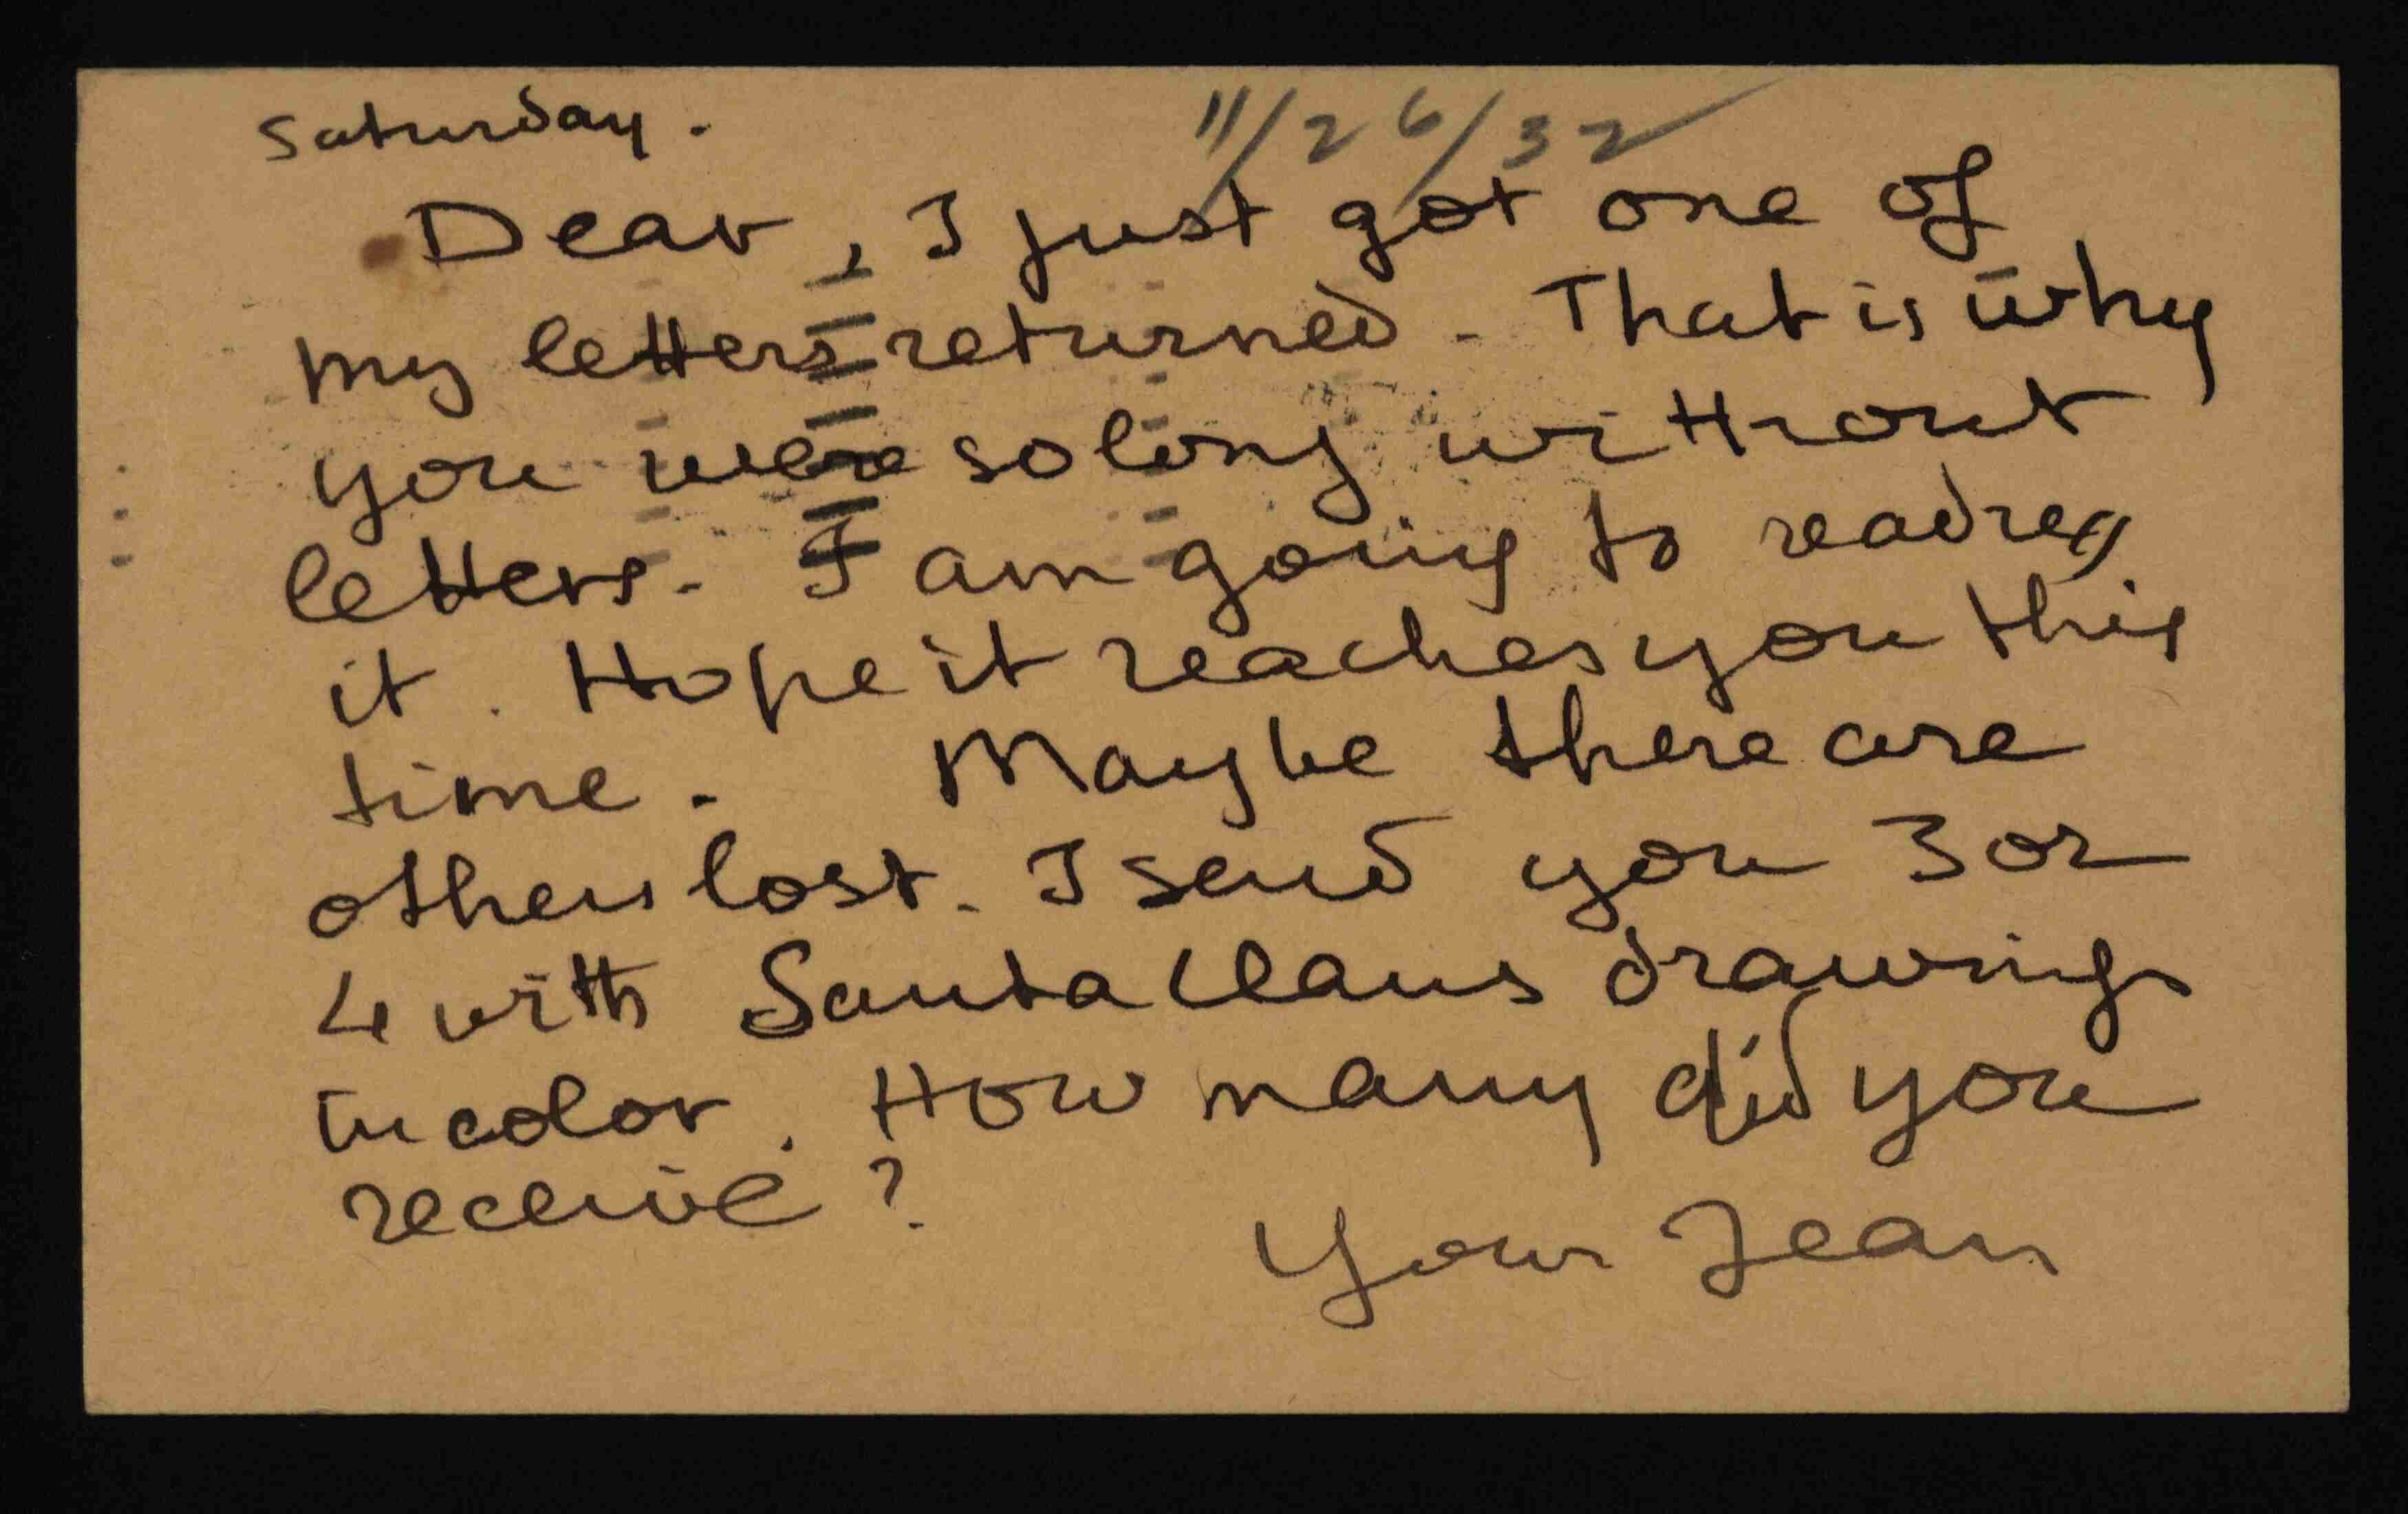 Saturday.
11/26/32
Dear, I just got one of
my letters returned. That is why
you were so long without
letters. I am going to readress
it. Hope it reaches you this
time. Maybe there are
others lost. I send you 3 or
4 with Santa Claus drawings
in color. How many did you
receive?
Your Jean